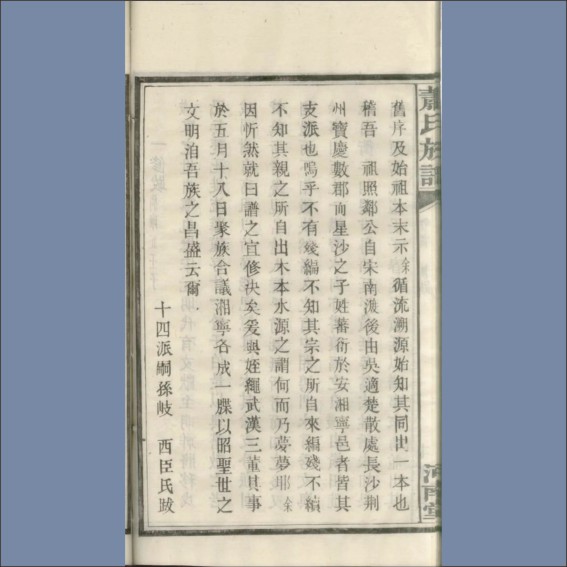 蕭氏族譜
舊序及始祖本末示余循流溯源始知其同出一本也
稽吾 祖照鄰公自宋南渡後由吳適楚散處長沙荆
州寶慶數郡而星沙之子姓蕃衍於安湘寧邑者皆其
支派也嗚乎不有幾編不知其宗之所自來編殘不續
不知其親之所自出木本水源之謂何而乃夢夢耶余
因忻然就曰譜之宜修决矣爰與姪繩武漢三董其事
於五月十八日聚族合議湘寧各成一牒以昭聖世之
文明洎吾族之昌盛云爾
十四派嗣孫岐 西臣氏跋
河南堂